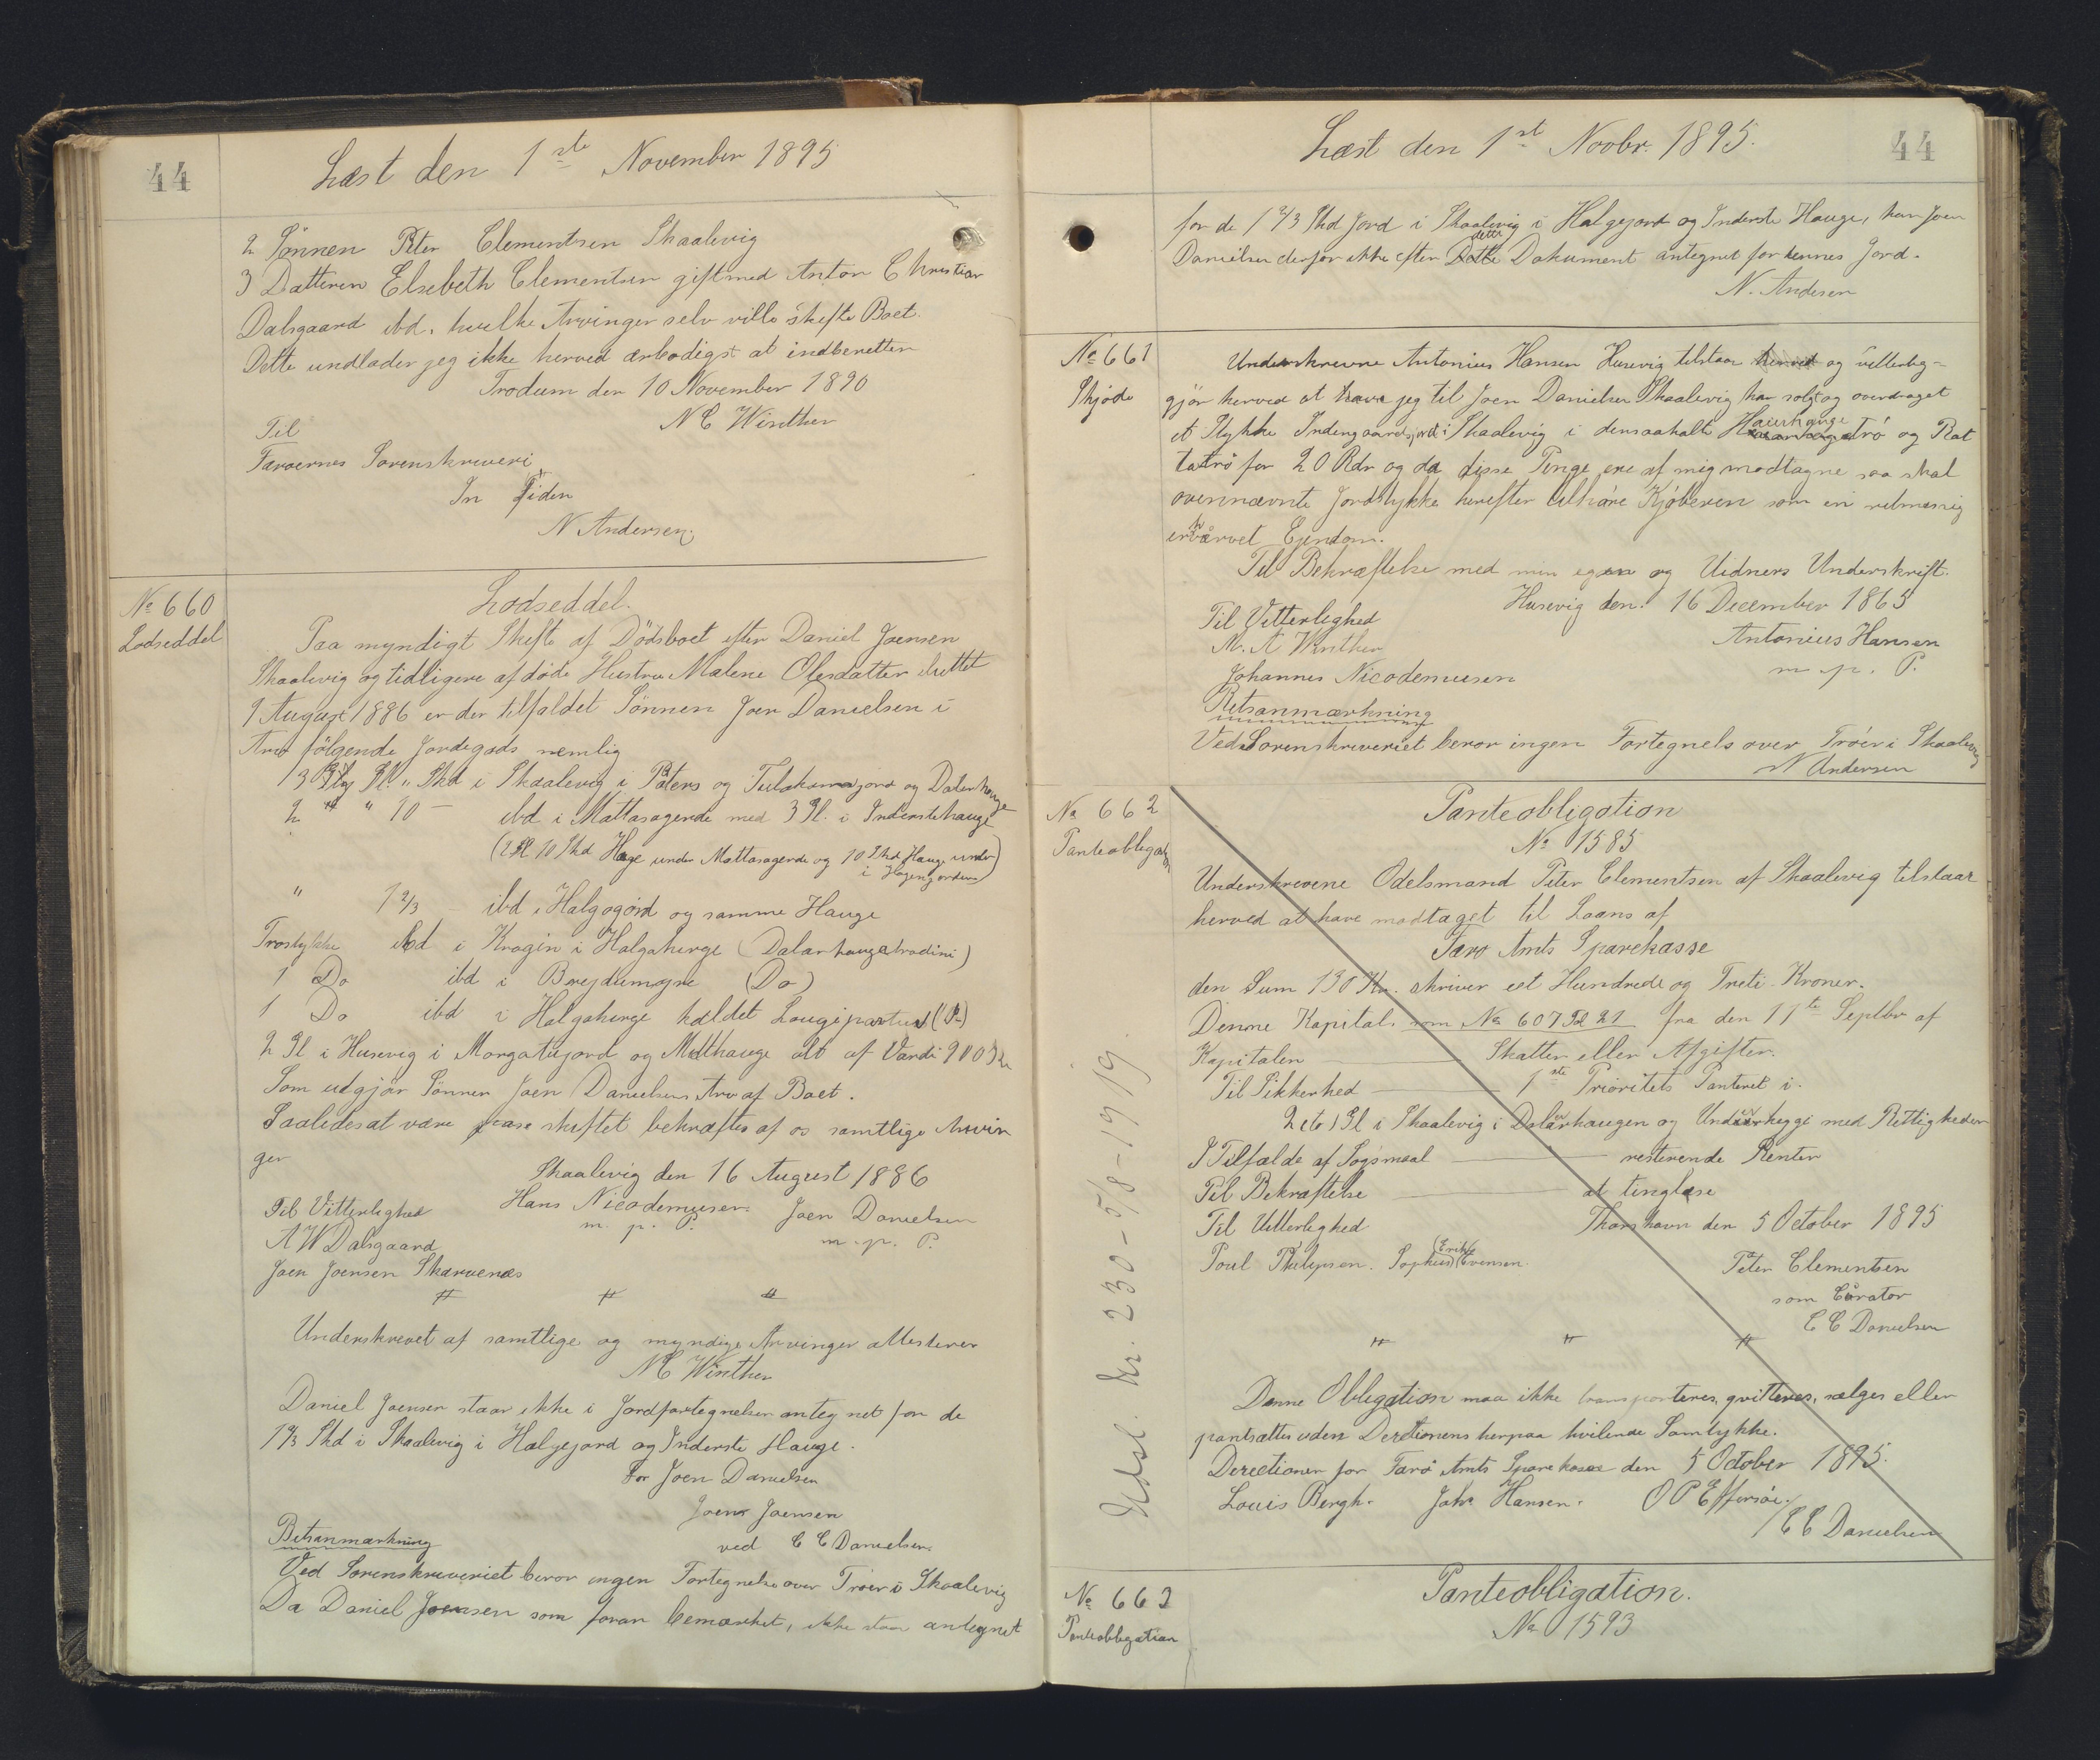 44
Læst den 1ste November 1895
2 Sönnen Peter Clementsen Skaalevig
3 Datteren Elsebeth Clementsen gift med Anton Christian
Dalsgaard ibd. hvilke Arvinger selv ville skifte Boet.
Dette undlader jeg ikke herved ærbödigst at indberetter
Trodum den 10 November 1890
N C Winther
Til
Færoernes Sorenskriveri
In fidem
N Andersen.
No 660
Lodseddel
Lodseddel.
Paa myndigt Skifte af Dödsboet efter Daniel Joensen
Skaalevig og tidligere afdöde Hustru Malene Olesdatter sluttet
9 August 1886 er der tilfaldet Sönnen Joen Danielsen i
Arv fölgende Jordegods nemlig
13 Gl. " Skd i Skaalevig i Peters og jord og Dalenhauge
2 " " 10 - ibd i Mattasagerde med 3 Gl. i Inderstehauge
(2 Gl 10 Skd Hage under Mattasagerde og 10 Skd Hauge under
i Hagengorden)
" 1 2/3 - ibd i Halgogórd og samme Hauge
Tröstykke ibd i Krogin i Halgaherge (Dalarhaugatradini)
1 Do ibd i Breydumyre (Do)
1 Do ibd i Halgaherge kaldet Laugipartur (Do)
2 Gl i Husevig i Morgatujord og Midthauge alt af Værdi 900 Kr
Som udgjör Sönnen Joen Danielsens Arv af Boet.
Saaledes at være skiftet bekræftes af os samtlige Arvin
ger
Skaalevig den 16 August 1886
Til Vitterlighed Hans Nicodemusen Joen Danielsen
m. p. P. m. p. P.
A W Dalsgaard
Joen Joensen Skarvenæs
Underskrevet af samtlige og myndige Arvinger attesterer
N C Winther
Daniel Joensen staar ikke i Jordfortegnelsen antegnet for de
1 2/3 Skd i Skaalevig i Halgejord og Inderste Hauge.
For Joen Danielsen
Joen Joensen
ved C C Danielsen.
Retsanmærkning
Ved Sorenskriveriet beror ingen Fortegnelse over Tröer i Skaalevig
Da Daniel Joensen som foran bemærket, ikke staar antegnet
44
Læst den 1st Novbr. 1895.
for de 1 2/3 Skd Jord i Skaalevig i Halgejord og Inderste Hauge, kan Joen
Danielsen derfor ikke efter dette Dokument antegnes for dennes Jord.
N. Andersen
No 661
Skjöde
Underskrevne Antonius Hansen Husevig tilstaar herved og vitterlig-
gjör herved at have jeg til Joen Danielsen Skaalevig har solgt og overdraget
et Stykke Indengaardsjord i Skaalevig i densaakaldt tró og Rat
tatró for 20 Rdr og da disse Penge ere af mig modtagne saa skal
ovennævnte Jordstykke herefter tilhöre Kjöberen som en retmæssig
erhvervet Ejendom.
Til Bekræftelse med min egen og Vidners Underskrift.
Husevig den. 16 December 1865
Til Vitterlighed
Antonius Hansen
m. p. P.
M. A Winther
Johannes Nicodemusen
Retsanmærkning
Ved Sorenskriveriet beror ingen Fortegnels over Tróer i Skaalevig
N Andersen
No 662
Panteobligation
Panteobligation
No 1585
Underskrevene Odelsmand Peter Clementsen af Skaalevig tilstaar
herved at have modtaget til Laans af
Færo Amts Sparekasse
den Sum 130 Kr. skriver eet Hundrede og Treti Kroner.
Denne Kapital som No 607 Fol 21 fra den 11te Septbr af
Kapitalen Skatter eller Afgifter.
Til Sikkerhed 1ste Prioritets Panteret i.
2 Gl i Skaalevig i Dalarhaugen og med Rettigheder
I Tilfælde af Sogsmaal resterende Renter
Til Bekræftelse at tinglæse
Til Vitterlighed Thorshavn den 5 October 1895
Poul Philipsen. Sophus (Erik) Evensen.
Peter Clementsen
som Curator
C C Danielsen
Denne Obligation maa ikke transporteres, qvitteres, sælges eller
pantsættes uden Derectionens herpaa hvilende Samtykke.
Derectionen for Færö Amts Sparekasse den 5 October 1895.
Louis Bergh. Johs Hansen. O P Effersöe.
/ C C Danielsen
Udsl. kr. 230 - 5/8 - 1919.
No 663
Panteobligation
Panteobligation.
No 1593